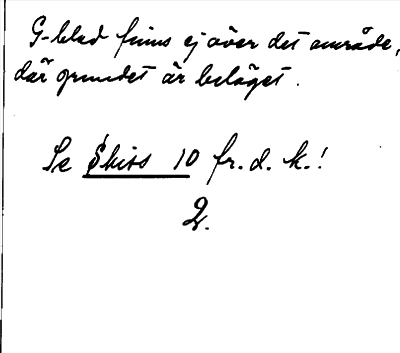 G-blad finns ej över det område,
där grundet är beläget.
Se Skiss 10 fr. d. k.!
2.